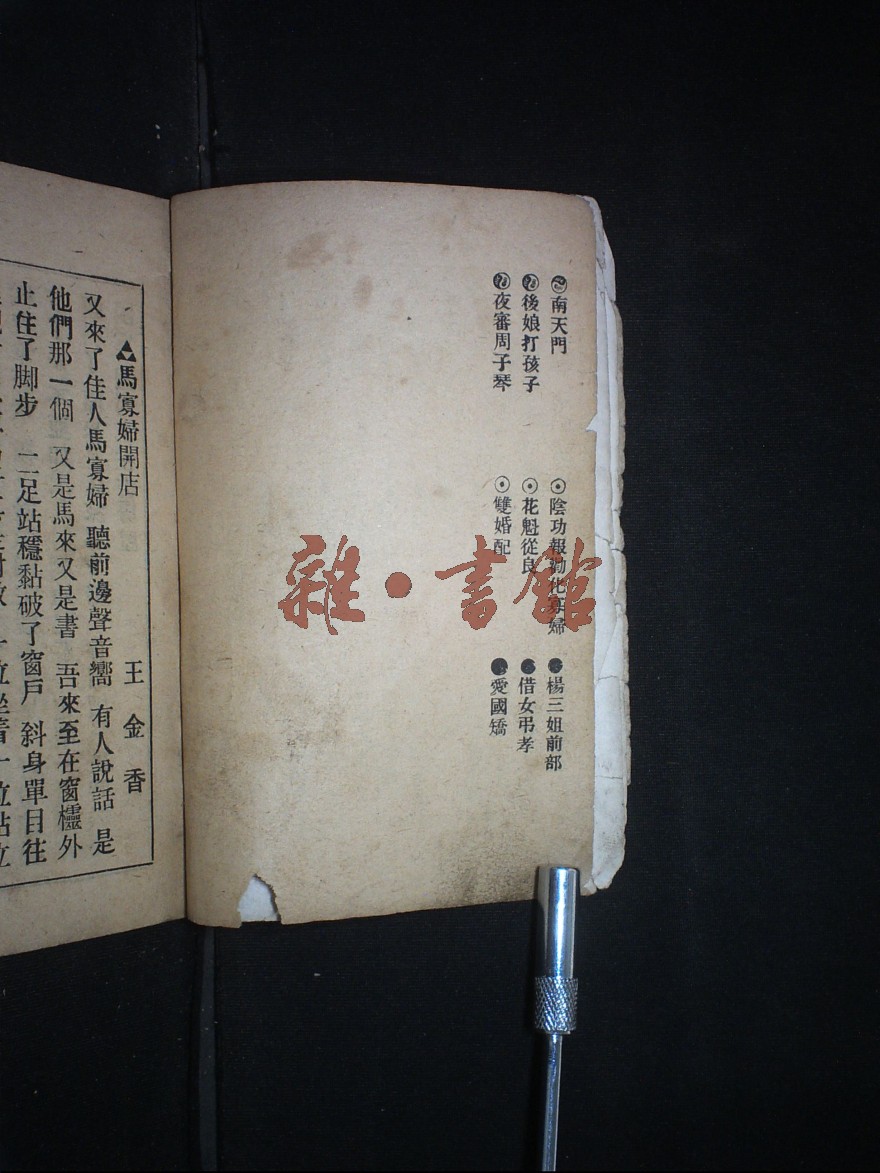 南天門
陰功報勸化寡婦
楊三姐前部
後娘打孩子
花魁從良
借女弔孝
夜審周子琴
雙婚配
愛國矯
雜·書館
▲馬寡婦開店 王金香
又來了佳人馬寡婦 聽前邊聲音嚮 有人說話 是
他們那一個 又是馬來又是書 吾來至在窗櫺外
止住了脚步 二足站穩黏破了窗戶 斜身單目往